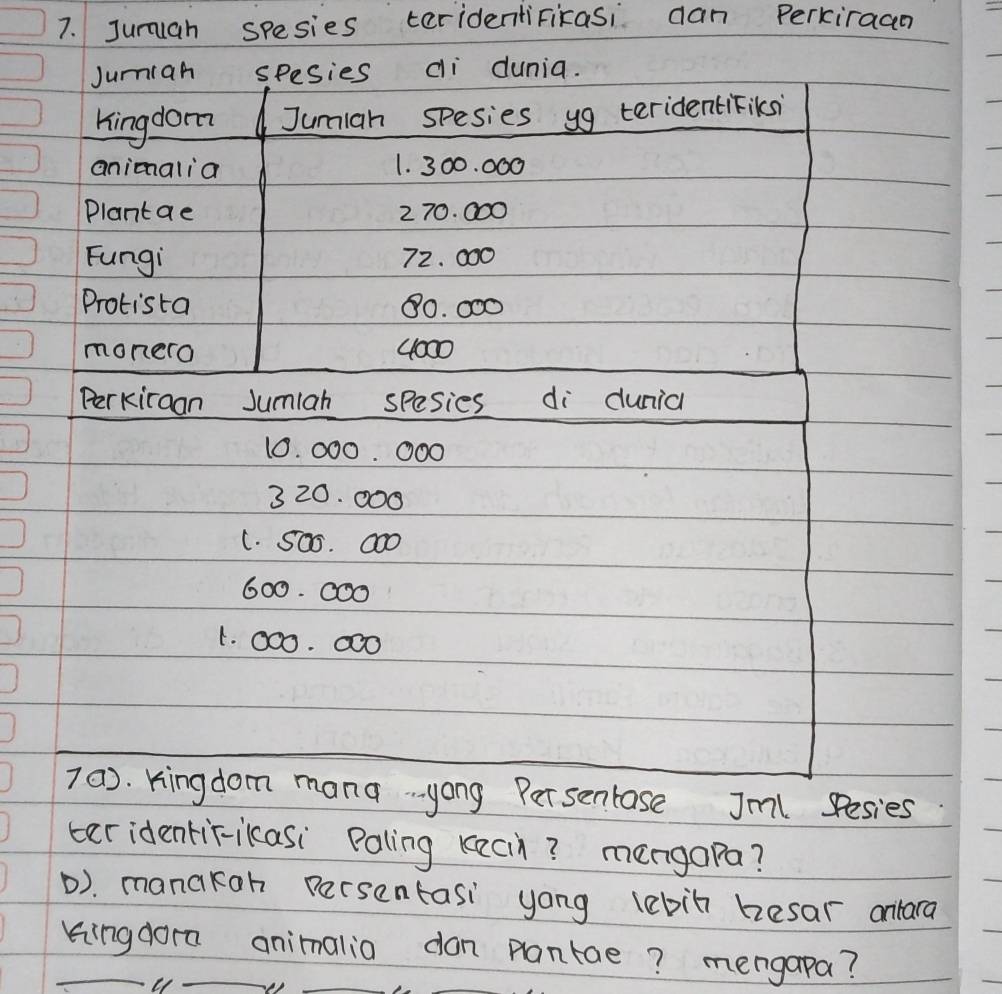 7. Jumlah spesies teridentifikasi dan Perkiraan
Jumlah spesies di dunia.
Kingdom Jumlah spesies yg teridentifiksi
animalia 1.300.000
Plantae 270.000
Fungi 72.000
Protista 80.000
monera 4000
Perkiraan Jumlah spesies di dunia
10.000.000
320.000
1.500.000
600.000
1.000.000
7a). Kingdom mana ...yang Persentase Jml spesies
teridentifikasi Paling kecil? mengapa?
b). manakah persentasi yang lebih besar antara
Kingdom animalia dan plantae? mengapa?